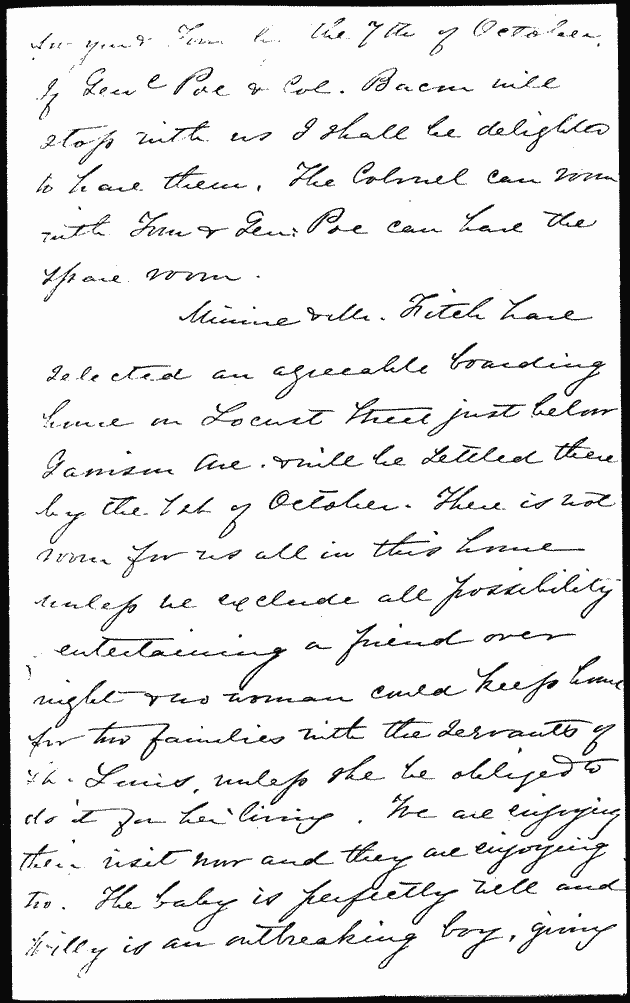 for you & Tom by the 7th of October.
If Genl Poe & Col. Bacon will
stop with us I shall be delighted
to have them. The Colonel can room
with Tom & Gen. Poe can have the
spare room.
Minnie & Mr. Fitch have
selected an agreeable boarding
house on Locust Street just below
Garrison Ave. & will be settled there
by the 1st of October. There is not
room for us all in this house
unless we exclude all possibility
entertaining a friend over
night & no woman could keep house
for two families with the servants of
St. Louis, unless she be obliged to
do it for her living. We are enjoying
their visit now and they are enjoying
too. The baby is perfectly well and
Willy is an outbreaking boy, giving